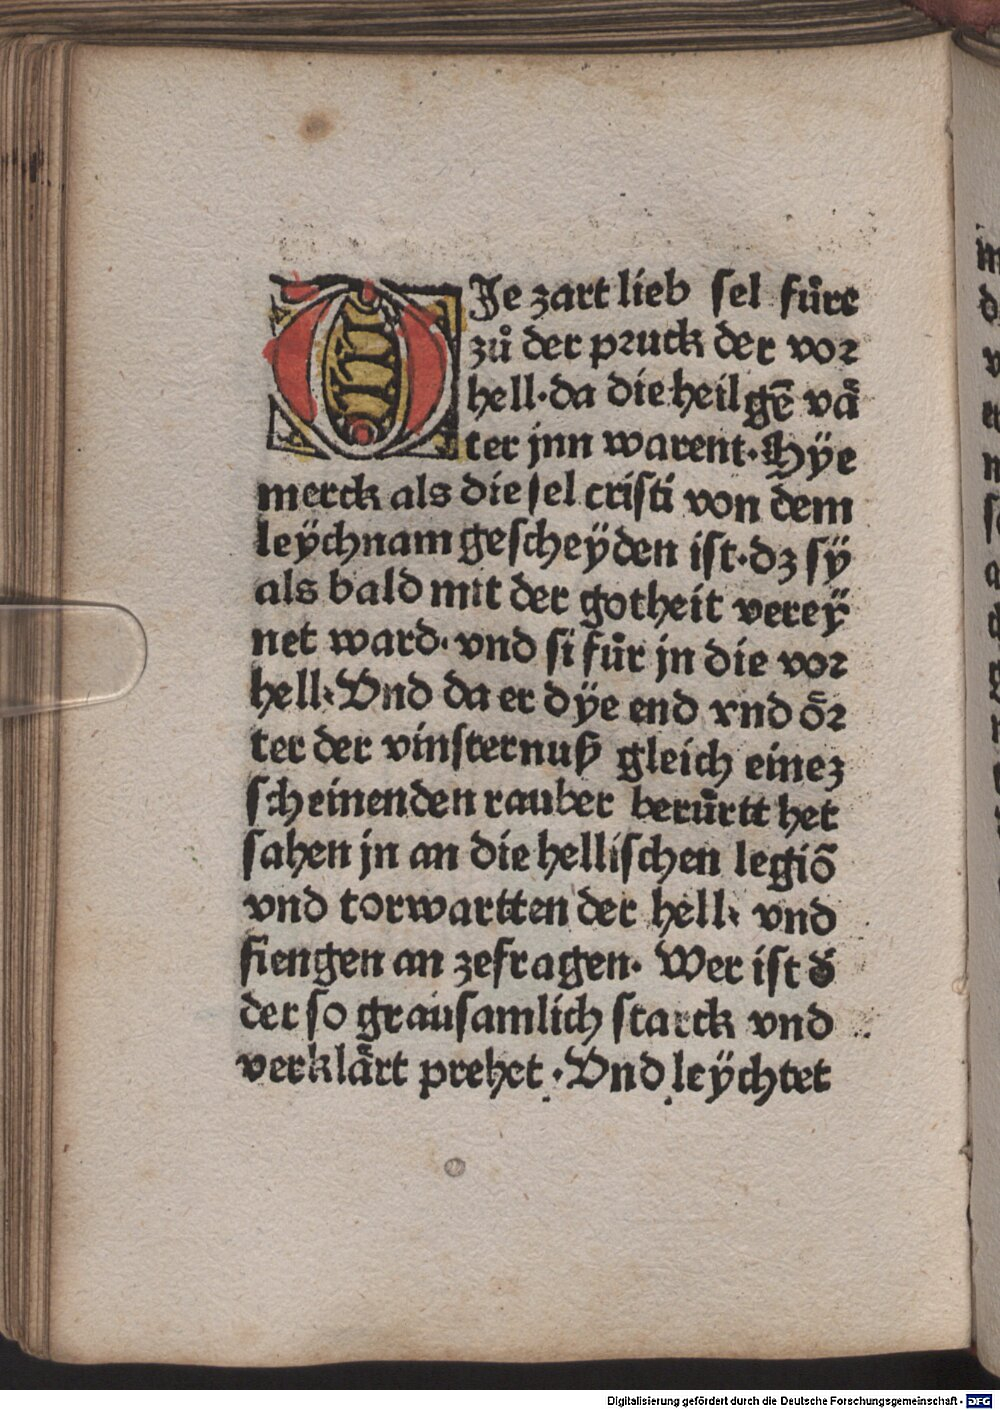 DJe zart lieb sel fůre
zů der pruck der vor
hell·da die heilgē vaͤ
ter jnn warent·Hÿe
merck als die sel cristi von dem
leÿchnam gescheÿden ist·dz sÿ
als bald mit der gotheit vereÿ
net ward·vnd si fůr jn die vor
hell·Vnd da er dÿe end vnd oͤr
ter der vinsternuß gleich einez
scheinenden rauber berůrtt het
sahen jn an die hellischen legiō
vnd torwartten der hell· vnd
fiengen an zefragen· Wer ist d͛
der so grausamlich starck vnd
verklaͤrt prehet·Vnd leÿchtet
Digitalisierung gefördert durch die Deutsche Forschungsgemeinschaft - DFG